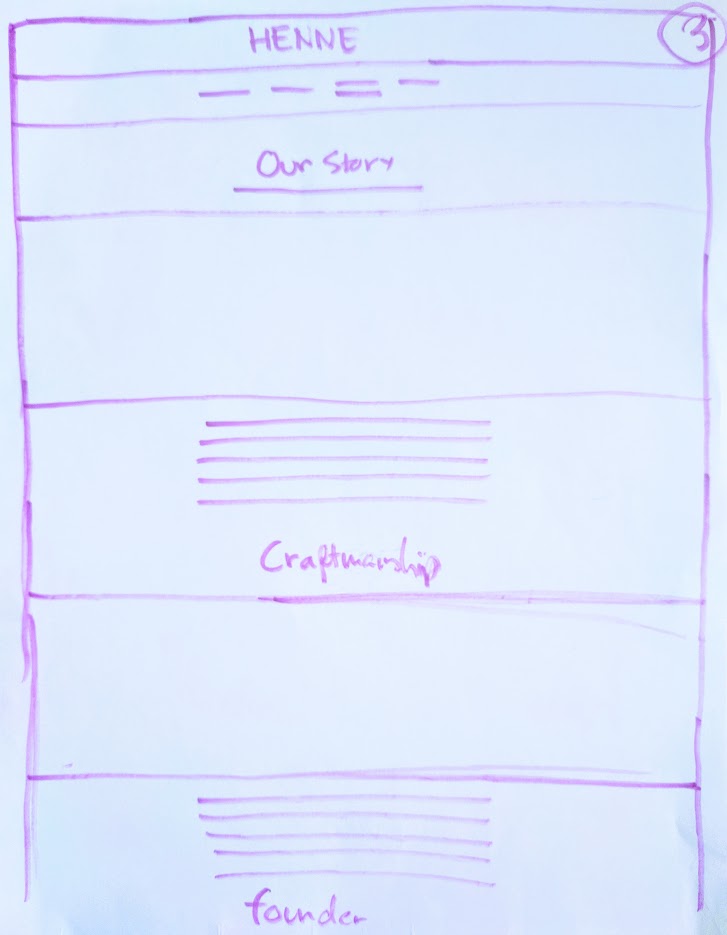 HENNE
3
Our Story
Craftmanship
founder